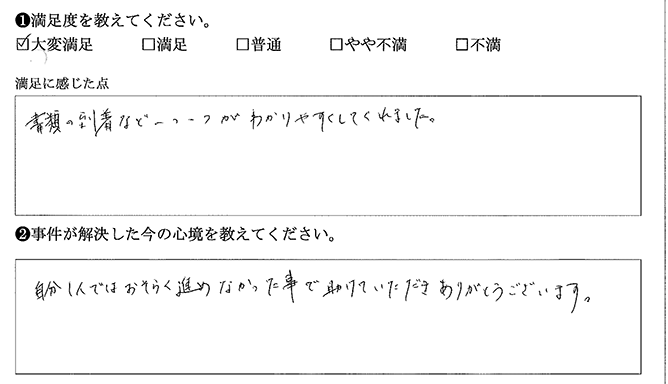 ❶満足度を教えてください。
☑大変満足 □満足 □普通 □やや不満 □不満
満足に感じた点
書類の到着など一つ一つがわかりやすくしてくれました。
❷事件が解決した今の心境を教えてください。
自分1人ではおそらく進めなかった事で助けていただきありがとうございます。